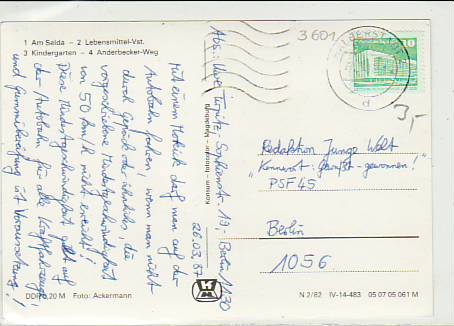 1 Am Salda – 2 Lebensmittel-Vst.
3 Kindergarten – 4 Anderbecker-Weg
Mit einem Hotrick darf man auf der
Autobahn fahren, wenn man nicht
durch Gepäck oder ähnliches, die
vorgeschriebene Mindestgeschwindigkeit
von 50 km/h nicht erreicht!
Diese Mindestgeschwindigkeit gilt auf
der Autobahn für alle Kraftfahrzeuge
und Gummibereifung ist Voraussetzung!
DDR 0,20 M Foto: Ackermann
Abs.: Uwe 19, Berlin, 1130
26.03.87
Konsum
3601
HALBERSTADT
d
10
3,-
Redaktion Junge Welt
"Kennwort: gewußt - gewonnen!"
PSF 45
Berlin
1056
N 2/82 IV-14-483 05 07 05 061 M